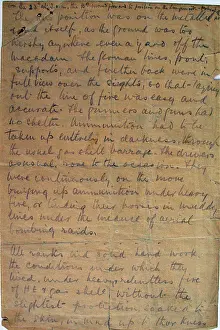 position was on the metalled
road itself, as the ground was too
heavy anywhere even a yard off the
macadam. The German lines, front,
supports, and further back were in
full view over the sights, so that laying
out the line of fire was easy and
accurate. The gunners and guns had
no shelter. Ammunition had to be
taken up entirely in darkness, through
the usual gas shell barrage. The drivers
as usual, rose to the occasion. They
were continuously on the move
bringing up ammunition under heavy
fire, or tending horses in muddy
lines under the menace of aerial
bombing raids.
All ranks had hard work
the conditions under which they
lived, under heavy relentless fire
of HE & gas shell, without the
slightest protection, soaked to
the skin,